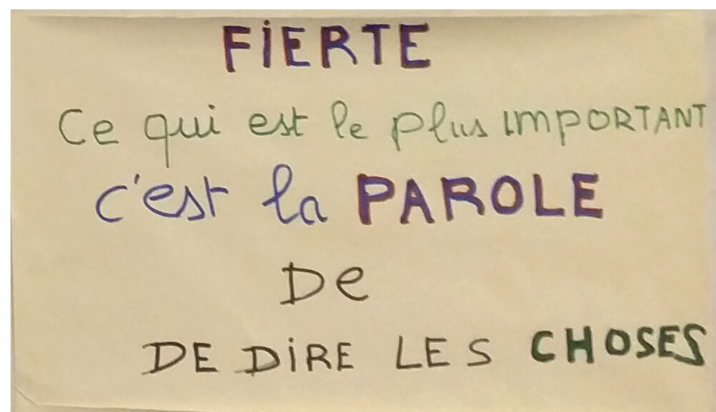 FiERTE
Ce qui est le plus IMPORTANT
c'est la PAROLE
De
DE DiRE LES CHOSES